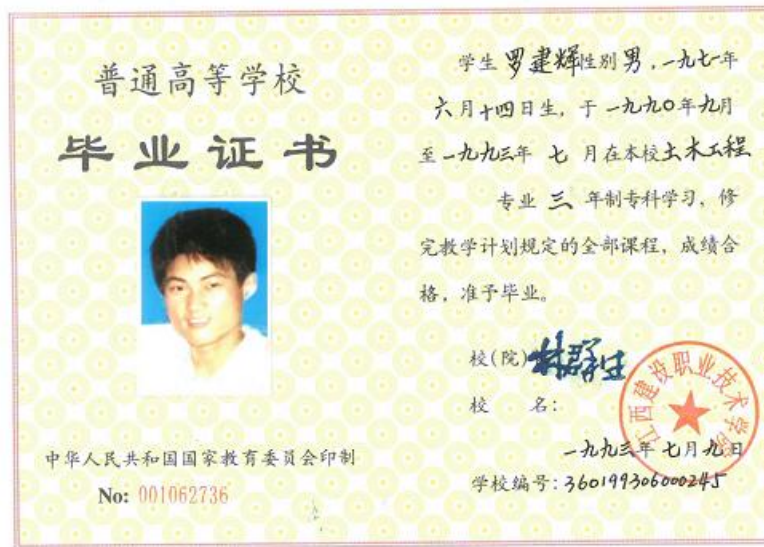 普通高等学校
毕业证书
中华人民共和国国家教育委员会印制
No: 001062736
学生 罗建辉 性别 男，一九七一年
六月十四日生，于一九九〇年九月
至一九九三年 七 月在本校土木工程
专业 三 年制专科学习，修
完教学计划规定的全部课程，成绩合
格，准予毕业。
校(院)
校 名：
江西建设职业技术学院
一九九三年七月九日
学校编号：360199306000245